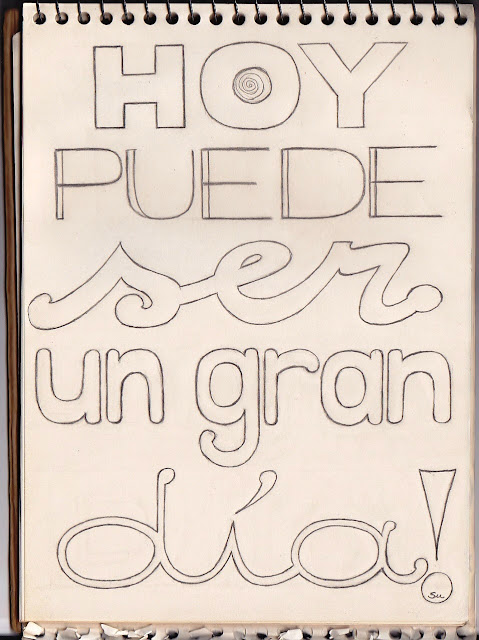 HOY
PUEDE
ser
un gran
día!
su